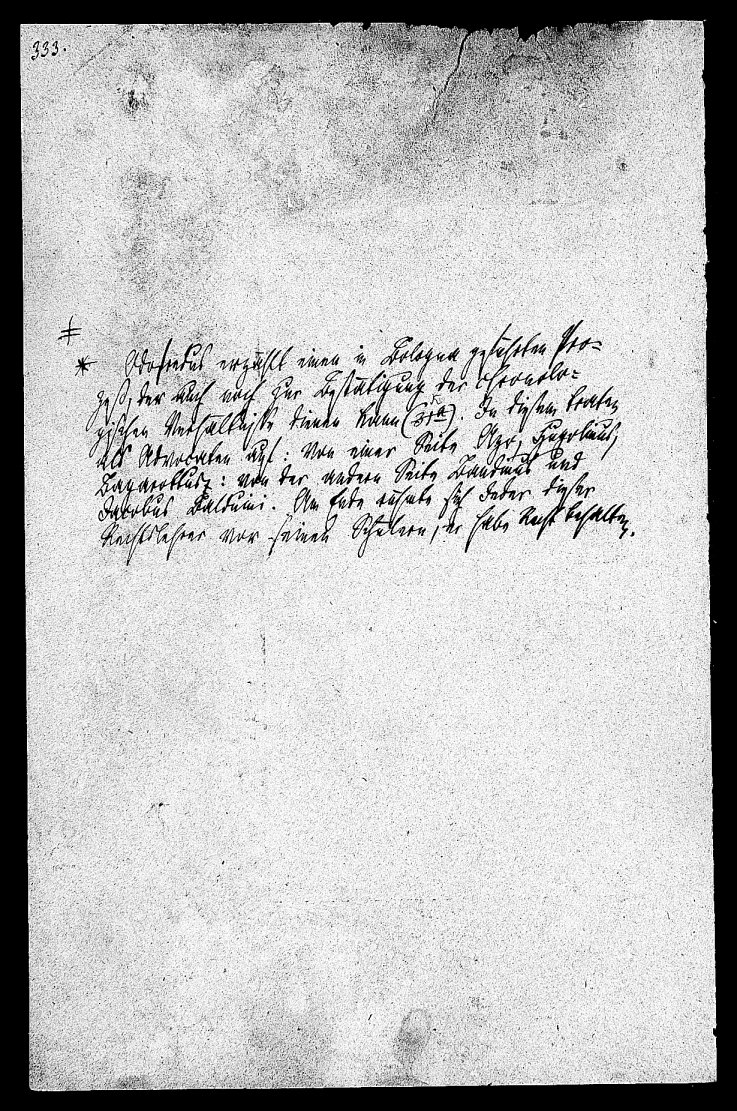 333.
Odofredus erzählt einen in Bologna geführten Pro=
zeß, der auch noch zur Bestätigung der chronolo=
gischen Verhältnisse dienen kann (31a). In diesem traten
als Advocaten auf: von einer Seite Azo, Hugolinus,
Bagarottus: von der andern Seite Bandinus und
Jacobus Balduini. Am Ende rühmte sich Jeder dieser
Rechtslehrer vor seinen Schülern, er habe Recht behalten.